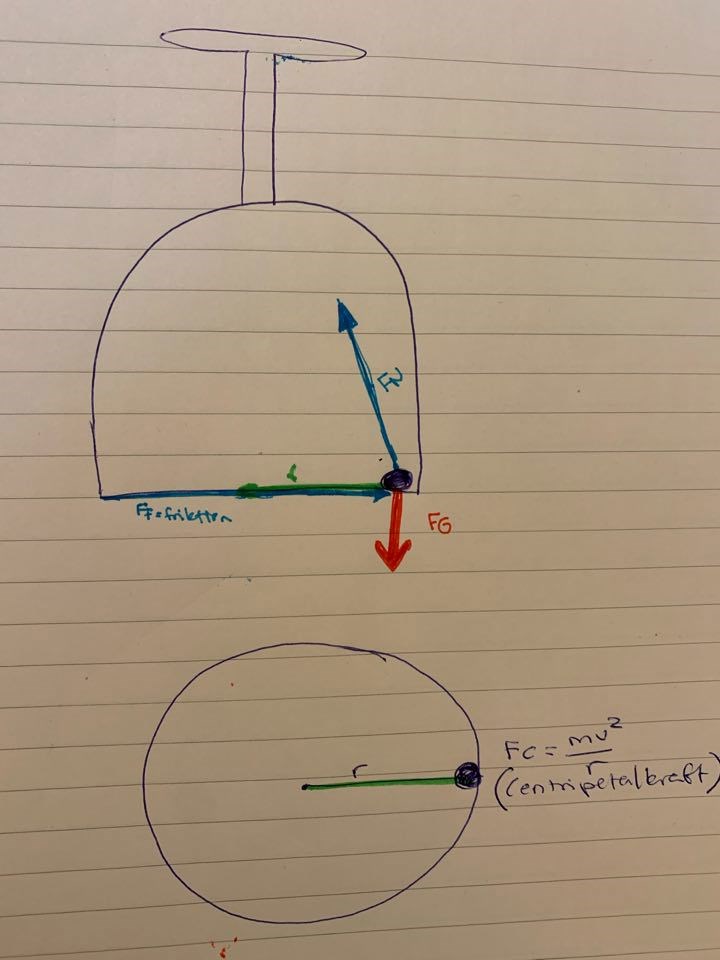 FN
r
FF=friktion
FG
r
Fc = mv²/r
(centripetalkraft)